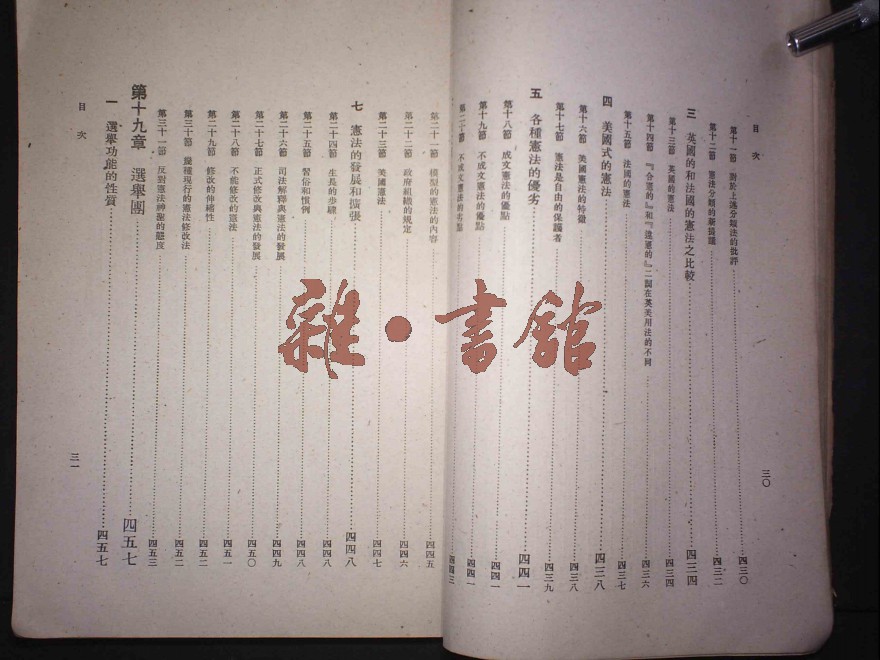 目次
第十一節 對於上述分類法的批評 四三〇
第十二節 憲法分類的新擬議 四三二
三 英國的和法國的憲法之比較 四三四
第十三節 英國的憲法 四三四
第十四節 『合憲的』和『違憲的』二詞在英美用法的不同 四三六
第十五節 法國的憲法 四三七
四 美國式的憲法 四三八
第十六節 美國憲法的特徵 四三八
第十七節 憲法是自由的保護者 四三九
五 各種憲法的優劣 四四一
第十八節 成文憲法的優點 四四一
第十九節 不成文憲法的優點 四四一
第二十節 不成文憲法的劣點 四四三
三〇
第二十一節 模型的憲法的內容 四四五
第二十二節 政府組織的規定 四四六
第二十三節 美國憲法 四四七
七 憲法的發展和擴張 四四八
第二十四節 生長的步驟 四四八
第二十五節 習俗和慣例 四四八
第二十六節 司法解釋與憲法的發展 四四九
第二十七節 正式修改與憲法的發展 四五〇
第二十八節 不能修改的憲法 四五一
第二十九節 修改的伸縮性 四五二
第三十節 幾種現行的憲法修改法 四五二
第三十一節 反對憲法神聖的態度 四五三
第十九章 選舉團 四五七
一 選舉功能的性質 四五七
目次
三一
雜·書館